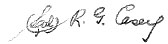 (Sgd) R. G. Casey